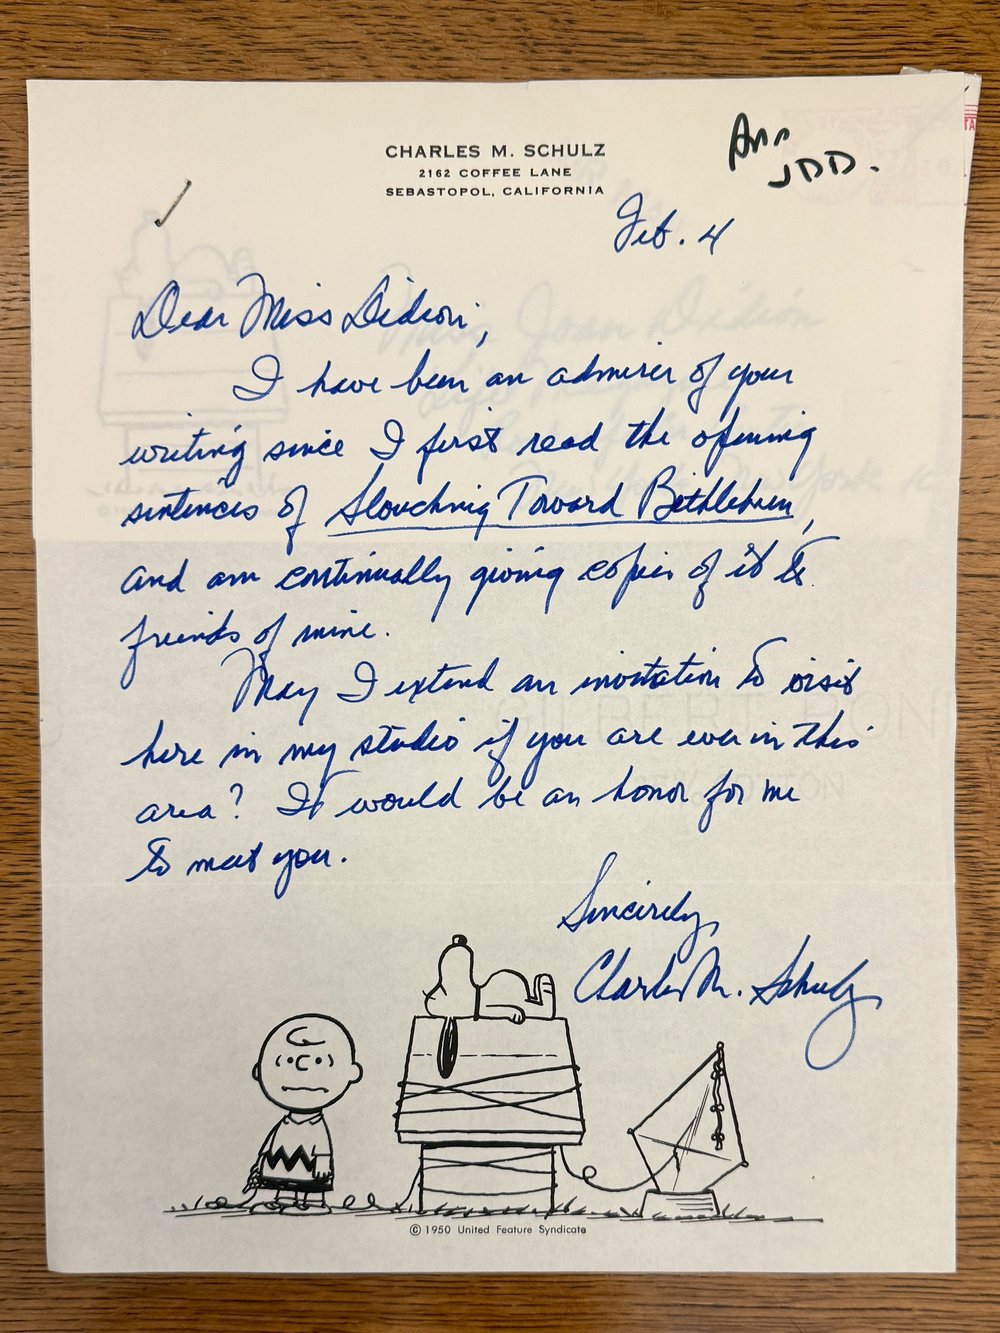 CHARLES M. SCHULZ
2162 COFFEE LANE
SEBASTOPOL, CALIFORNIA
JDD.
Feb. 4
Dear Miss Didion,
I have been an admirer of your
writing since I first read the opening
sentences of Slouching Toward Bethlehem,
and am continually giving copies of it to
friends of mine.
May I extend an invitation to visit
here in my studio if you are ever in this
area? It would be an honor for me
to meet you.
Sincerely,
Charles M. Schulz
© 1950 United Feature Syndicate